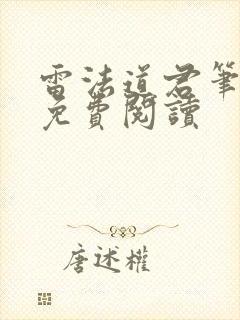 雷法道君筆
免費閱讀
唐述權